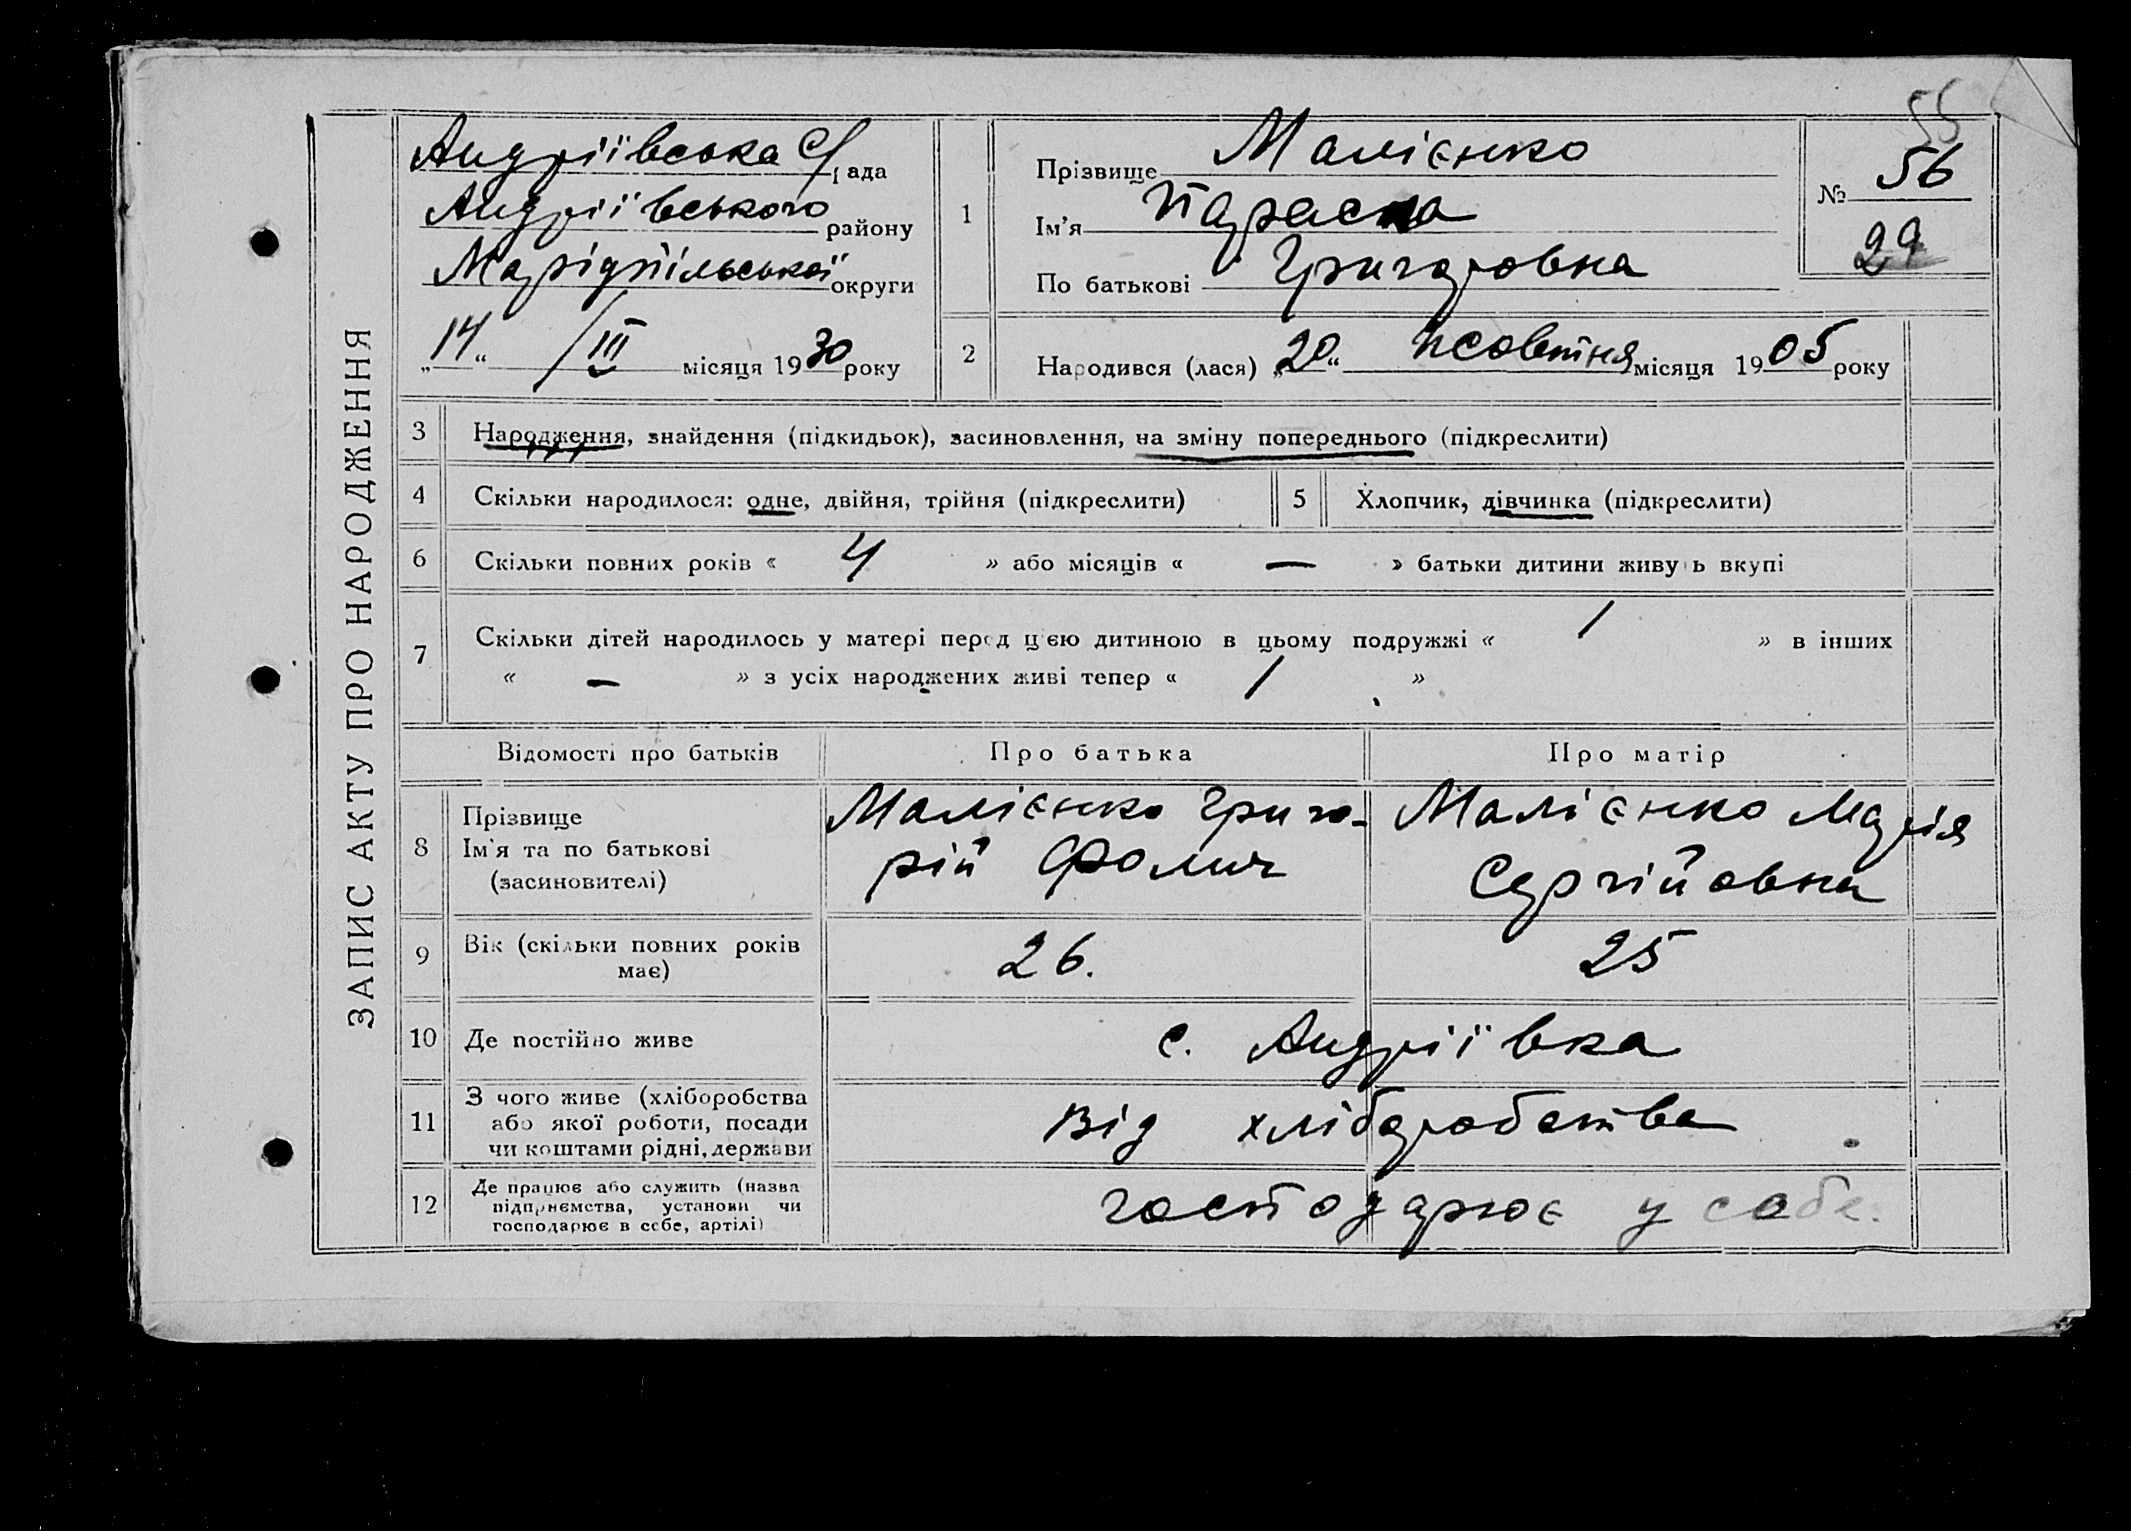 55
ЗАПИС АКТУ ПРО НАРОДЖЕННЯ
Андріївська с/рада
Андріївського району
Маріупільської округи
„14“ /III місяця 1930 року
1
Прізвище Малієнко
Ім'я Параска
По батькові Григоровна
№ 56
29
2
Народився (лася) „20“ жовтня місяця 1905 року
3 Народження, знайдення (підкидьок), засиновлення, на зміну попереднього (підкреслити)
4 Скільки народилося: одне, двійня, трійня (підкреслити)
5 Хлопчик, дівчинка (підкреслити)
6 Скільки повних років « 4 » або місяців « — » батьки дитини живуть вкупі
7 Скільки дітей народилось у матері перед цією дитиною в цьому подружжі « 1 » в інших
« — » з усіх народжених живі тепер « 1 »
Відомості про батьків Про батька Про матір
8 Прізвище
Ім'я та по батькові
(засиновителі)
Малієнко Григо-
рій Фомич
Малієнко Марія
Сергійовна
9 Вік (скільки повних років
має)
26.
25
10 Де постійно живе с. Андріївка
11 З чого живе (хліборобства
або якої роботи, посади
чи коштами рідні, держави
Від хліборобства
12 Де працює або служить (назва
підприємства, установи чи
господарює в себе, артілі)
господарює у себе.